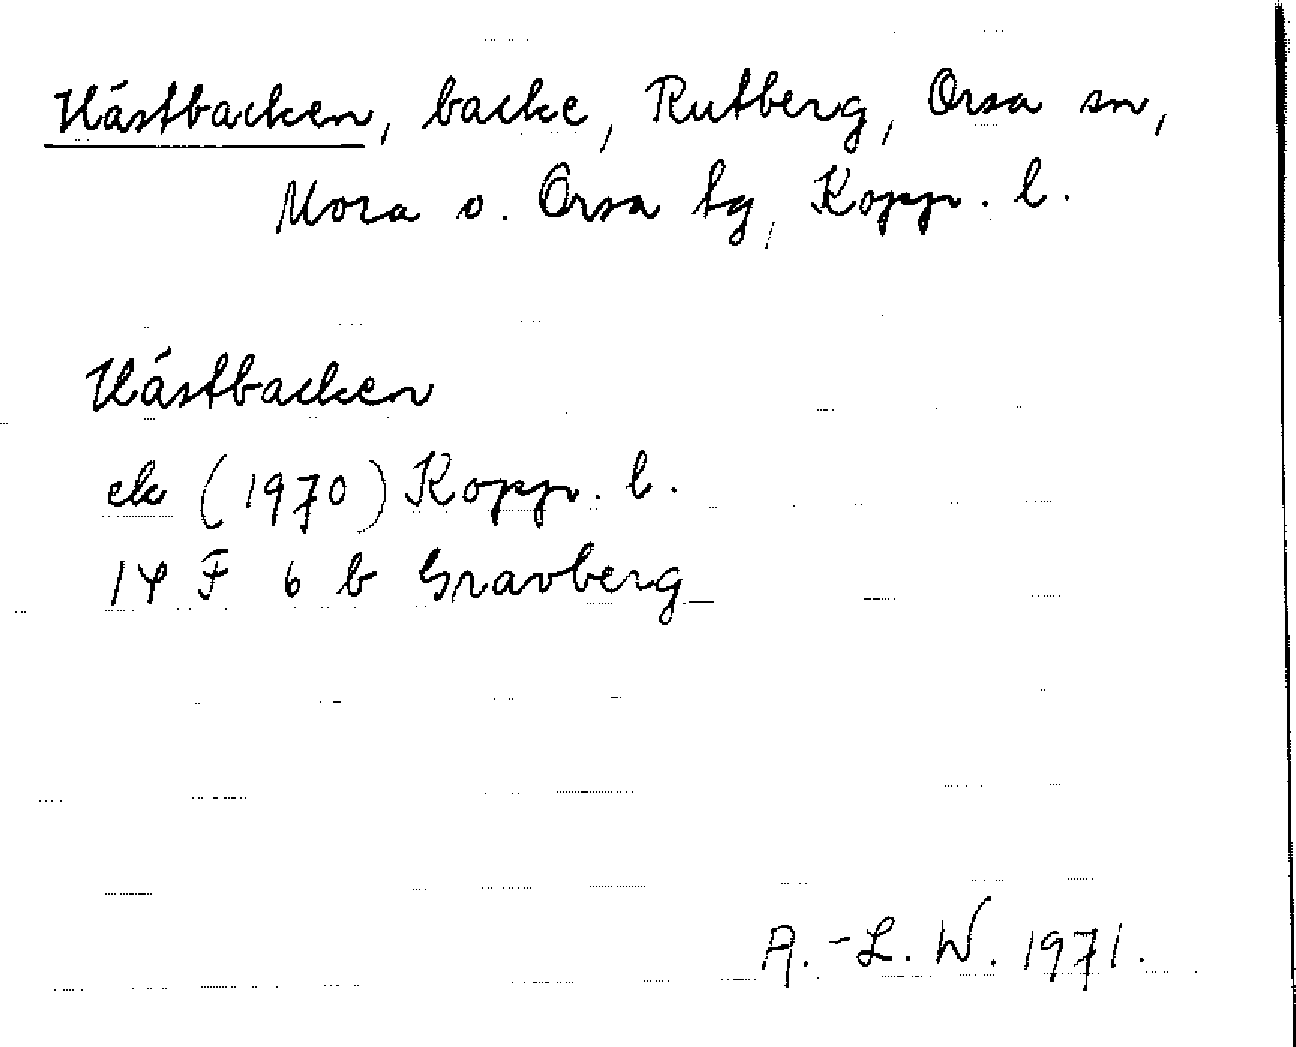 Hästbacken, backe, Rutberg, Orsa sn,
Mora o. Orsa tg, Kopp. l.
Hästbacken
ek (1970) Kopp. l.
14 F 6 b Gravberg
A.-L. W. 1971.